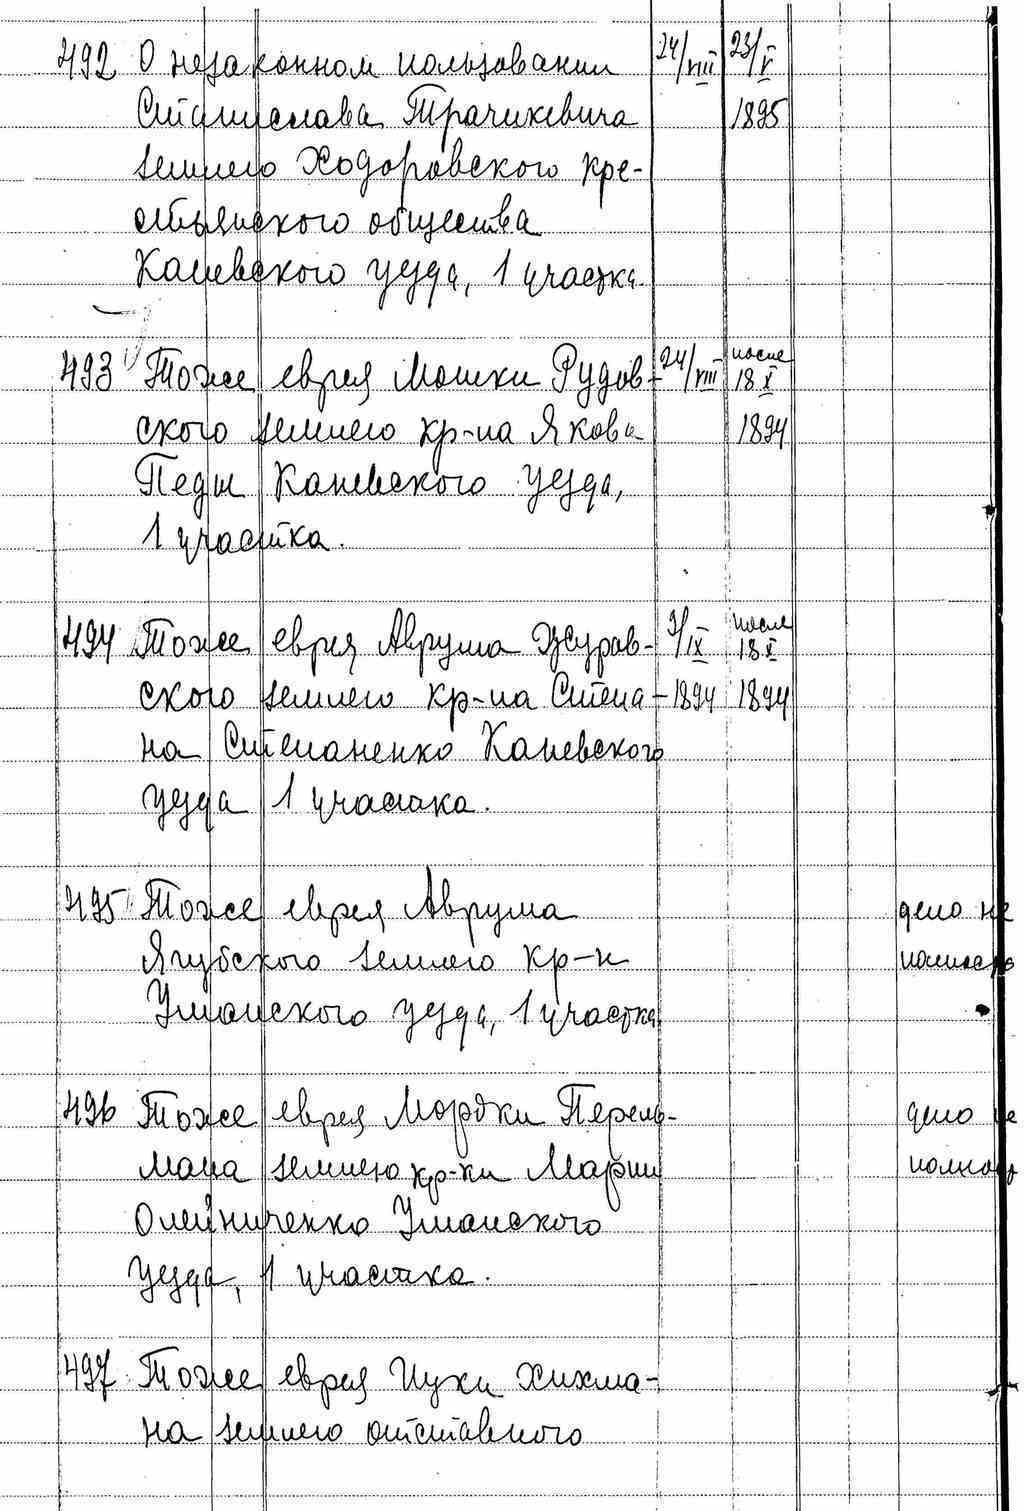 492 О незаконном пользовании 24/VIII 23/V
Станислава Трачикевича 1895
землею Ходоровского кре-
стьянского общества
Каневского уезда, 1 участка.
493 Тоже еврея Мошки Рудов- 24/VIII после 18 X
ского землею кр-на Якова 1894
Педы Каневского уезда,
1 участка.
494 Тоже еврея Аврума Журав- 9/IX после 18 X
ского землею кр-на Степа- 1894 1894
на Степаненко Каневского
уезда 1 участка.
495 Тоже еврея Аврума дело не
Ягубского землею кр-н
Уманского уезда, 1 участка
496 Тоже еврея Мордки Перель- дело не
мана землею кр-ки Марии
Олейниченко Уманского
уезда, 1 участка.
497 Тоже еврея Ицки Хихма-
на землею отставного